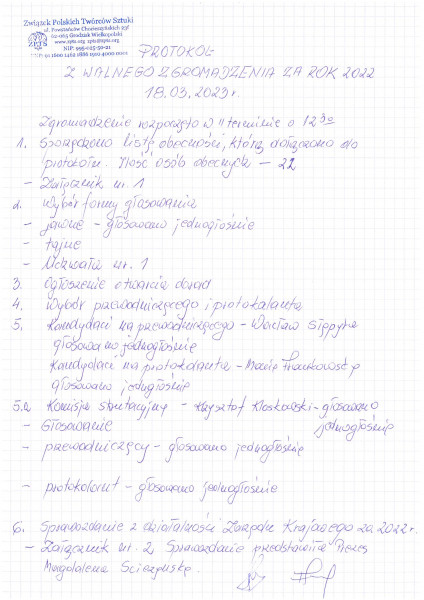 Związek Polskich Twórców Sztuki
ul. Powstańców Chocieszyńskich 23f
62-065 Grodzisk Wielkopolski
www.zpts.org zpts@zpts.org
NIP: 995-025-50-21
1600 1462 1886 1910 4000 0001
PROTOKÓŁ
Z WALNEGO ZGROMADZENIA ZA ROK 2022
18.03.2023 r.
Zgromadzenie rozpoczęto w II terminie o 12 30
1. Sporządzono listę obecności, którą dołączono do
protokołu. Ilość osób obecnych – 22
– Załącznik nr. 1
2. Wybór formy głosowania
– jawne – głosowano jednogłośnie
– tajne
– Uchwała nr. 1
3. Ogłoszenie otwarcia obrad
4. Wybór przewodniczącego i protokolanta
5. Kandydaci na przewodniczącego – Wacław
głosowano jednogłośnie
Kandydaci na protokolanta – Maria
głosowano jednogłośnie
5.a Komisja skrutacyjny – Krzysztof Kłoskowski – głosowano
– Głosowanie jednogłośnie
– przewodniczący – głosowano jednogłośnie
– protokolant – głosowano jednogłośnie
6. Sprawozdanie z działalności Zarządu Krajowego za 2022 r.
– Załącznik nr. 2, Sprawozdanie przedstawiła Prezes
Magdalena